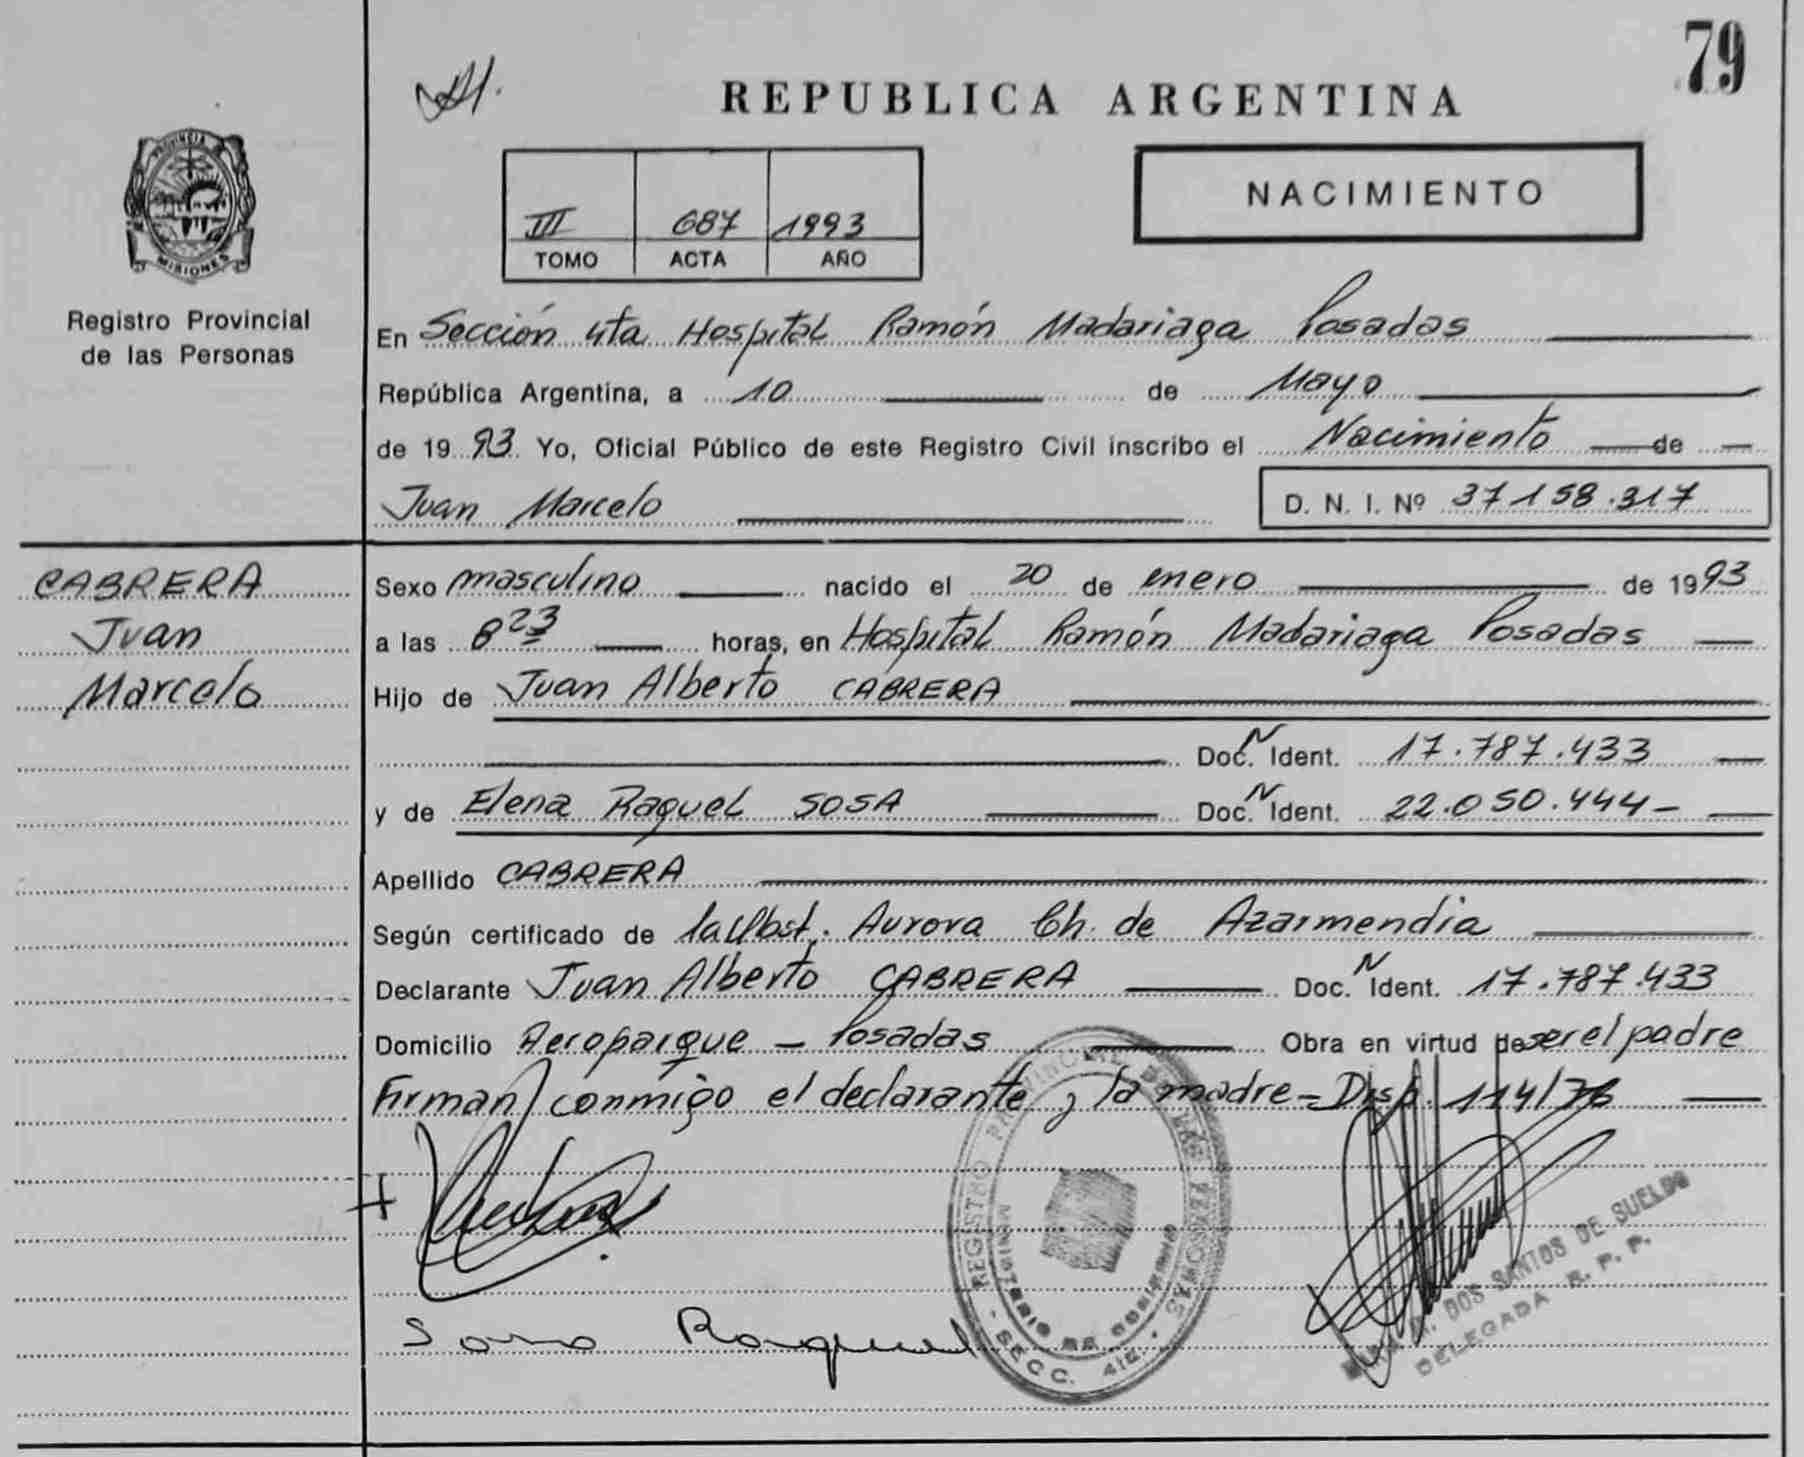 79
REPUBLICA ARGENTINA
NACIMIENTO
III 687 1993
TOMO ACTA AÑO
PROVINCIA DE
MISIONES
Registro Provincial
de las Personas
En Sección 4ta Hospital Ramón Madariaga Posadas
República Argentina, a 10 de Mayo
de 1993 Yo, Oficial Público de este Registro Civil inscribo el Nacimiento de
Juan Marcelo D. N. I. Nº 37158.317
CABRERA
Juan
Marcelo
Sexo masculino nacido el 20 de enero de 1993
a las 8 23 horas, en Hospital Ramón Madariaga Posadas
Hijo de Juan Alberto CABRERA
Doc. N Ident. 17.787.433
y de Elena Raquel SOSA Doc. N Ident. 22.050.444-
Apellido CABRERA
Según certificado de la Obst. Aurora Ch. de Azarmendia
Declarante Juan Alberto CABRERA Doc. N Ident. 17.787.433
Domicilio Aeroparque - Posadas Obra en virtud de ser el padre
Firman conmigo el declarante y la madre - Disp. 114/76
Sosa Raquel
REGISTRO PROVINCIAL DE LAS PERSONAS
MINISTERIO DE GOBIERNO
- SECC. 4ta. -
DOS SANTOS DE SUELDO
DELEGADA R. P. P.